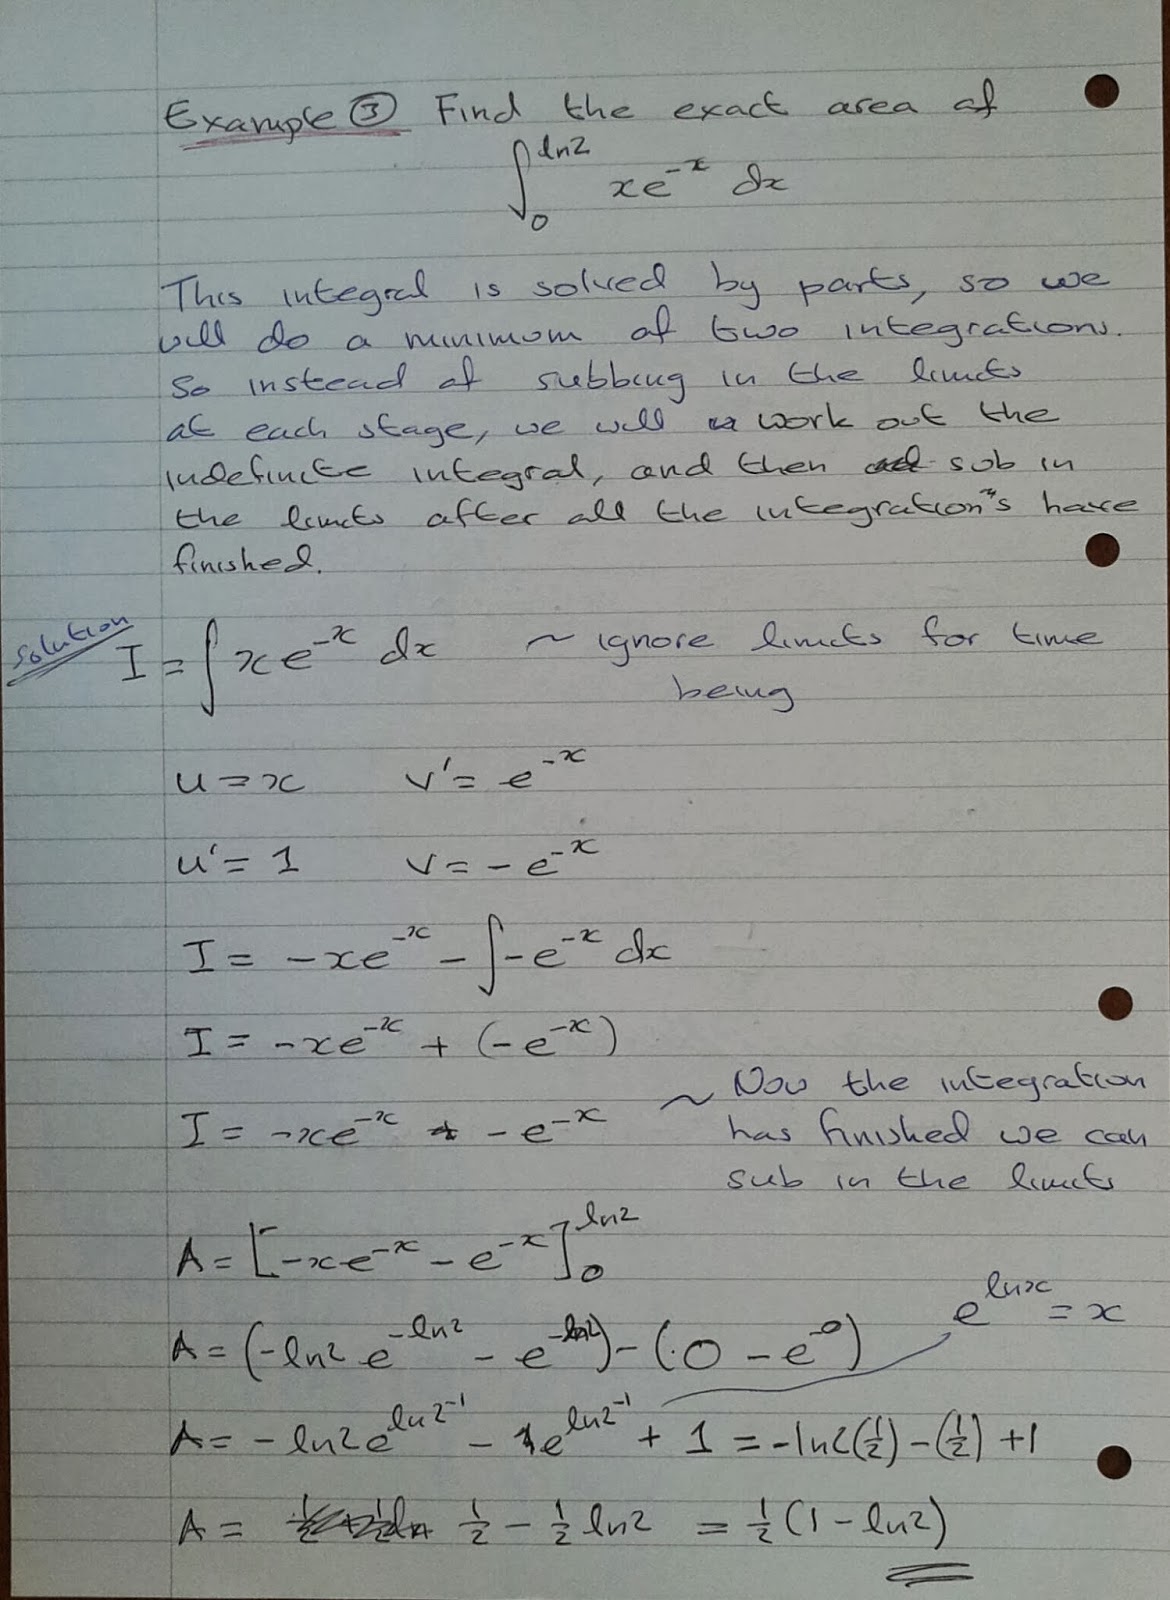 Example ③ Find the exact area of
∫₀^ln2 xe^-x dx
This integral is solved by parts, so we
will do a minimum of two integrations.
So instead of subbing in the limits
at each stage, we will work out the
indefinite integral, and then sub in
the limits after all the integration"s have
finished.
Solution
I = ∫ xe^-x dx ~ ignore limits for time
being
u = x v' = e^-x
u' = 1 v = -e^-x
I = -xe^-x - ∫-e^-x dx
I = -xe^-x + (-e^-x)
I = -xe^-x - e^-x ~ Now the integration
has finished we can
sub in the limits
A = [-xe^-x - e^-x]₀^ln2
e^lnx = x
A = (-ln2 e^-ln2 - e^-ln2) - (0 - e^-0)
A = -ln2e^ln2^-1 - e^ln2^-1 + 1 = -ln2(1/2) - (1/2) + 1
A = 1/2 - 1/2 ln2 = 1/2 (1 - ln2)